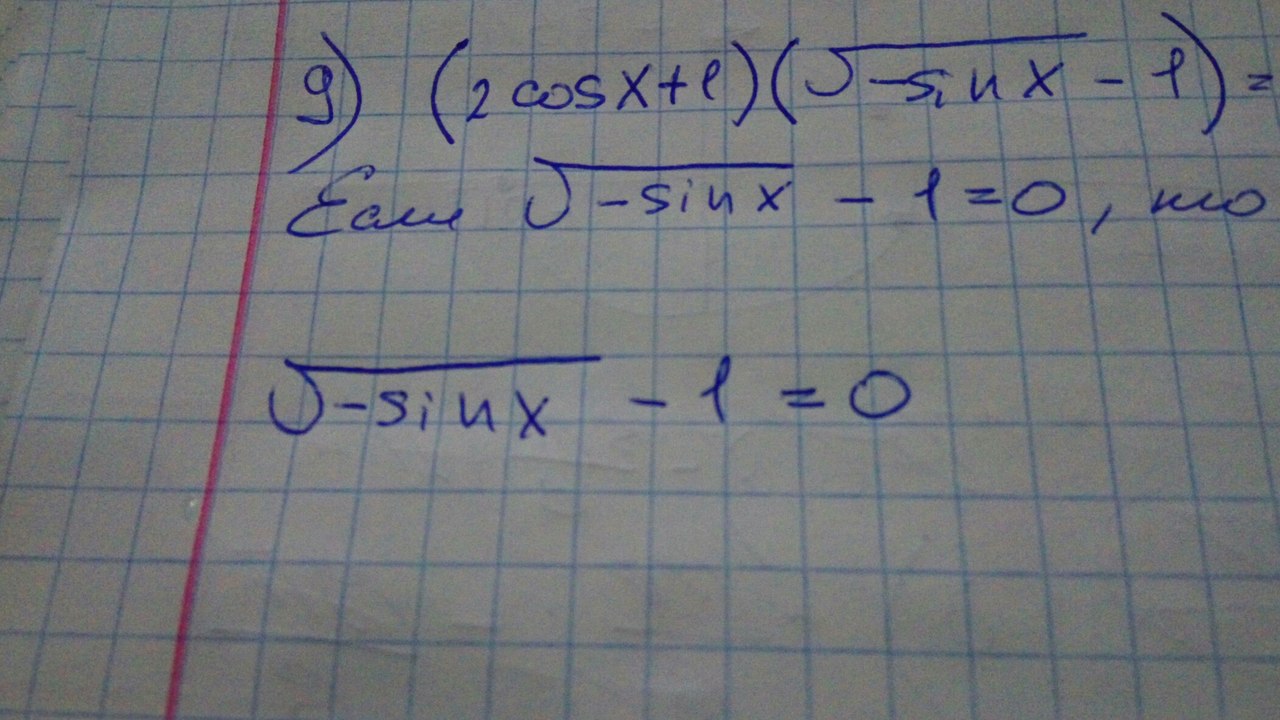 9) (2cosx+1)(√-sinx - 1)=
Если √-sinx - 1=0, то
√-sinx - 1 = 0